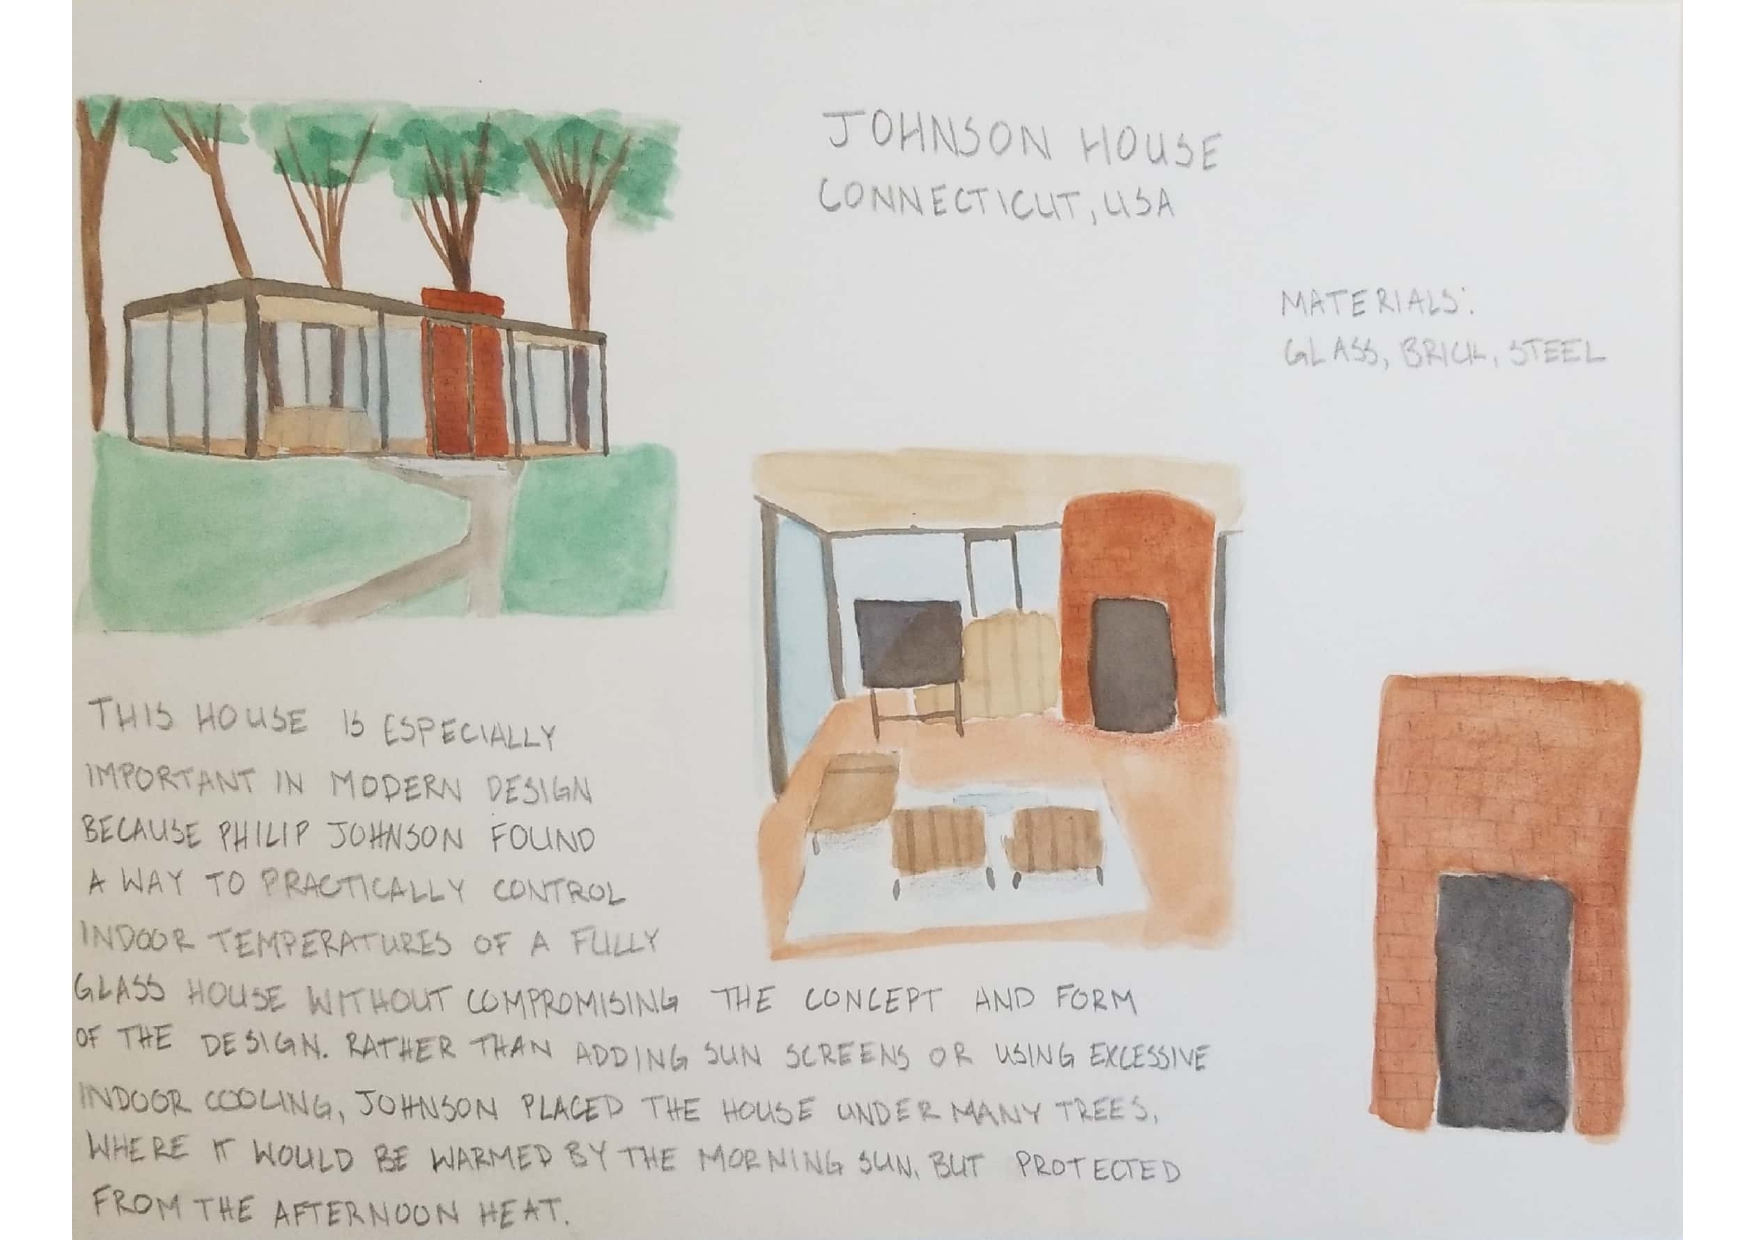 JOHNSON HOUSE
CONNECTICUT, USA
MATERIALS:
GLASS, BRICK, STEEL
THIS HOUSE IS ESPECIALLY
IMPORTANT IN MODERN DESIGN
BECAUSE PHILIP JOHNSON FOUND
A WAY TO PRACTICALLY CONTROL
INDOOR TEMPERATURES OF A FULLY
GLASS HOUSE WITHOUT COMPROMISING THE CONCEPT AND FORM
OF THE DESIGN. RATHER THAN ADDING SUN SCREENS OR USING EXCESSIVE
INDOOR COOLING, JOHNSON PLACED THE HOUSE UNDER MANY TREES,
WHERE IT WOULD BE WARMED BY THE MORNING SUN, BUT PROTECTED
FROM THE AFTERNOON HEAT.